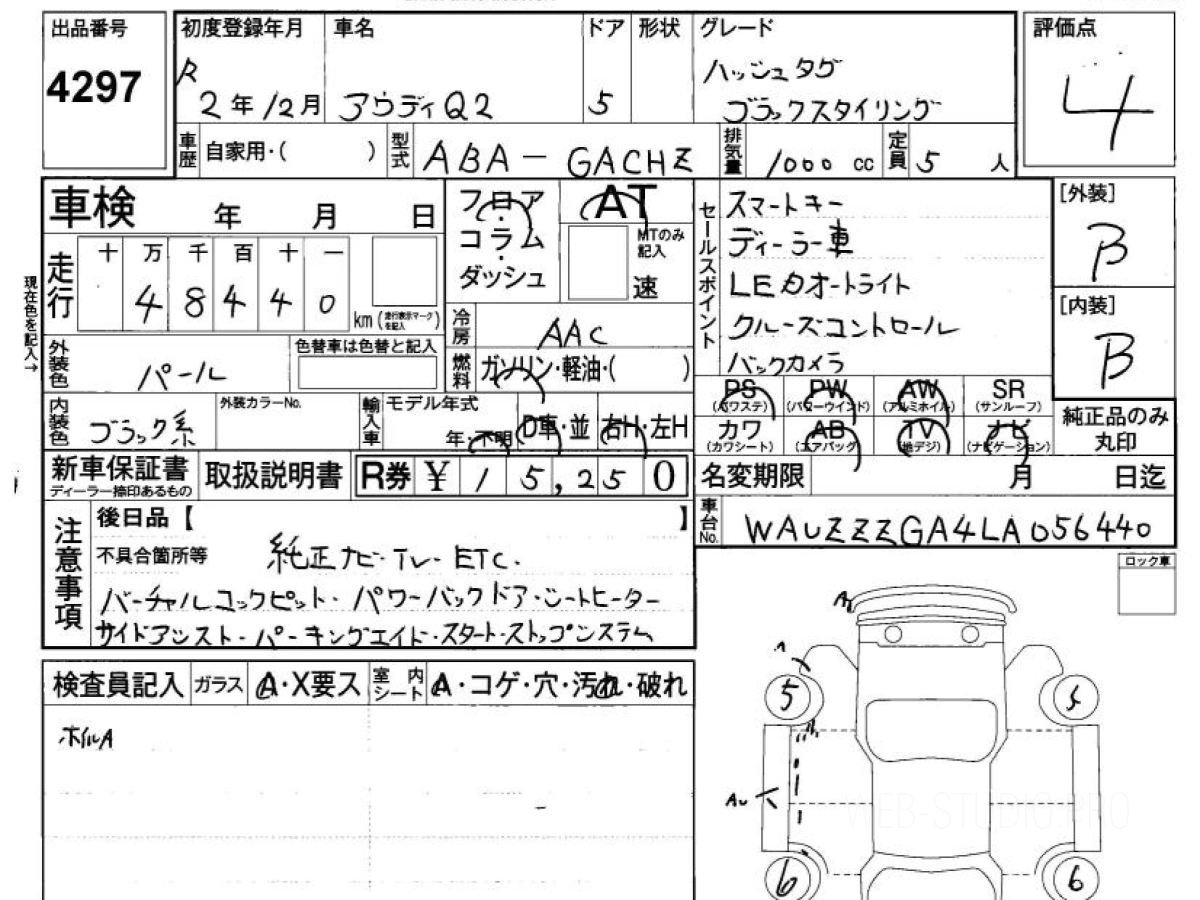 出品番号
4297
初度登録年月
R
2年12月
車名
アウディQ2
ドア
5
形状
グレード
ハッシュタグ
ブラックスタイリング
評価点
4
車歴
自家用・( )
型式
ABA-GACHZ
排気量
1000 cc
定員
5 人
車検 年 月 日
フロア
・
コラム
・
ダッシュ
AT
MTのみ
記入
速
セールスポイント
スマートキー
ディーラー車
LEDオートライト
クルーズコントロール
バックカメラ
[外装]
B
[内装]
B
現在色を記入→
走行
十 万 千 百 十 一
4 8 4 4 0
km (走行表示マークを記入)
冷房
AAC
外装色
パール
色替車は色替と記入
燃料
ガソリン・軽油・( )
PS (パワステ)
PW (パワーウインド)
AW (アルミホイル)
SR (サンルーフ)
カワ (カワシート)
AB (エアバッグ)
TV (地デジ)
ナビ (ナビゲーション)
純正品のみ
丸印
内装色
ブラック系
外装カラーNo.
輸入車
モデル年式
年・不明
D車・並
右H・左H
新車保証書
ディーラー捺印あるもの
取扱説明書
R券 ¥ 15,250
名変期限 月 日迄
車台No.
WAUZZZGA4LA056440
注意事項
後日品【 】
不具合箇所等
純正ナビ・TV・ETC.
バーチャルコックピット・パワーバックドア・シートヒーター
サイドアシスト・パーキングエイド・スタート・ストップシステム
ロック車
検査員記入
ガラス
A・X要ス
室内シート
A・コゲ・穴・汚れ・破れ
ホイルA
5
AU
6
6
WEB-STUDIO.PRO